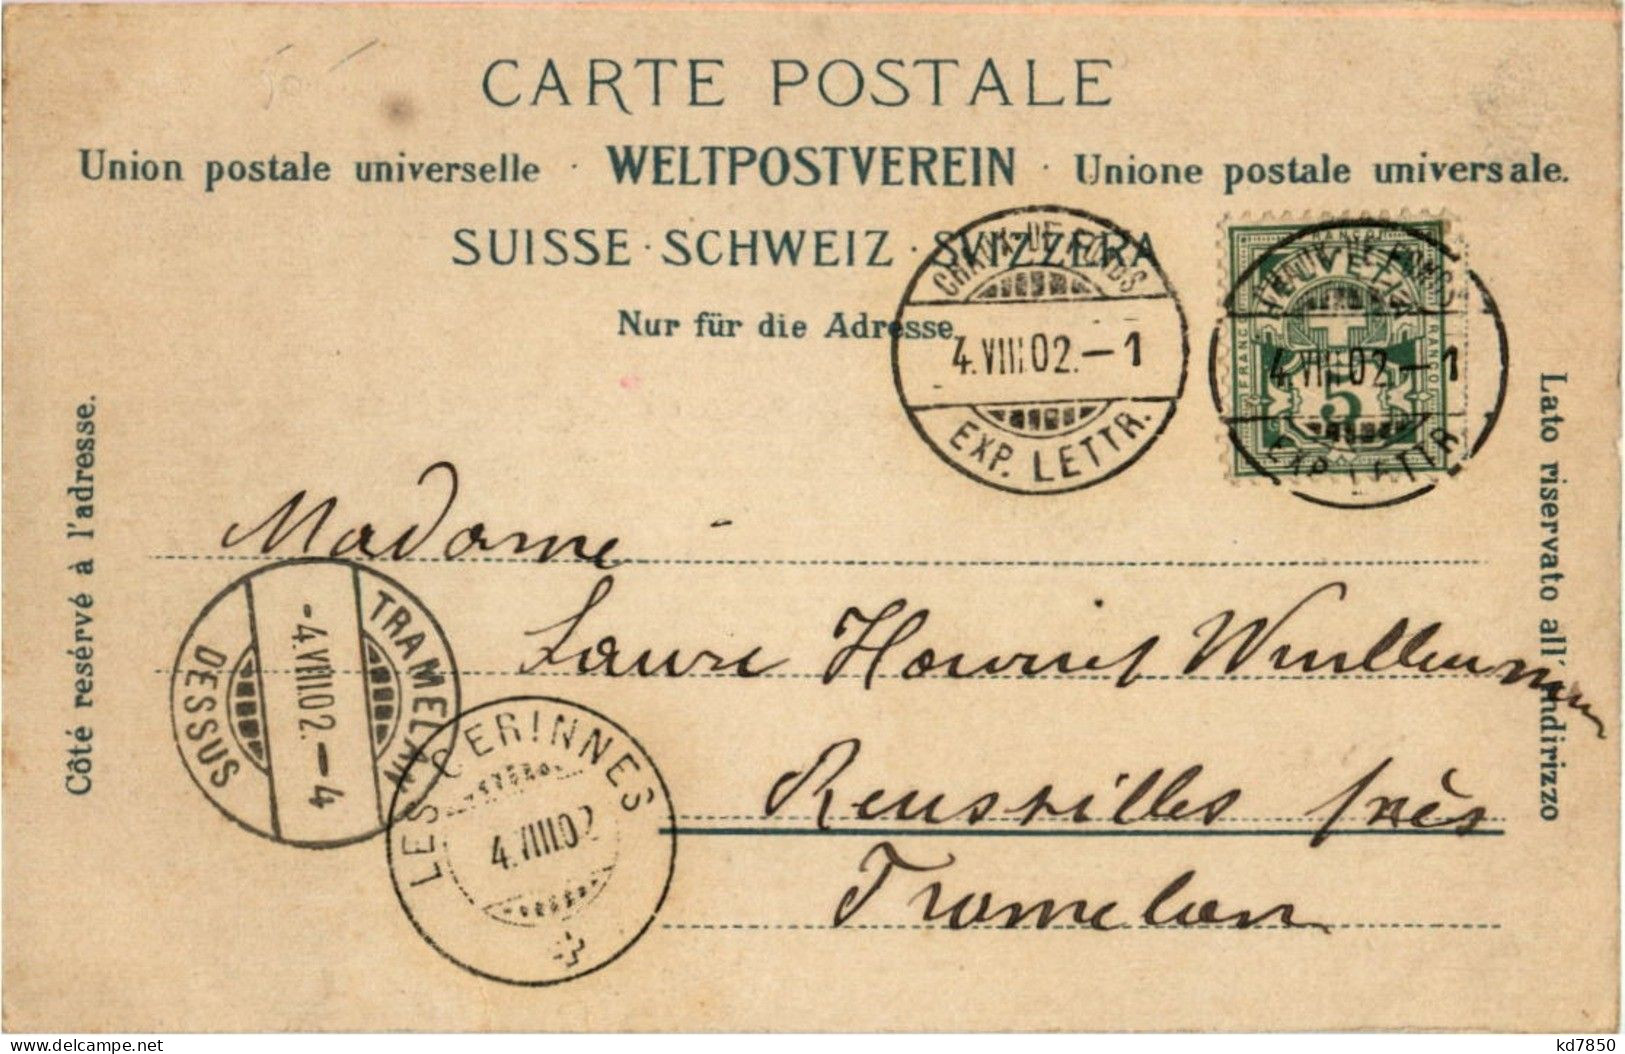 CARTE POSTALE
Union postale universelle · WELTPOSTVEREIN · Unione postale universale.
SUISSE · SCHWEIZ · SVIZZERA
Nur für die Adresse.
CHAUX-DE-FONDS
4.VIII.02.–1
EXP. LETTR.
CHAUX-DE-FONDS
4.VIII.02.–1
EXP. LETTR.
FRANCO
HELVETIA
FRANCO
5
Côté resérvé à l'adresse.
Lato riservato all' indirizzo
Madame
Laure Houriet Wuilleumier
Reussilles près
Tramelan
TRAMELAN
-4.VIII.02.–4
DESSUS
LES GERINNES
4.VIII.02
kd7850